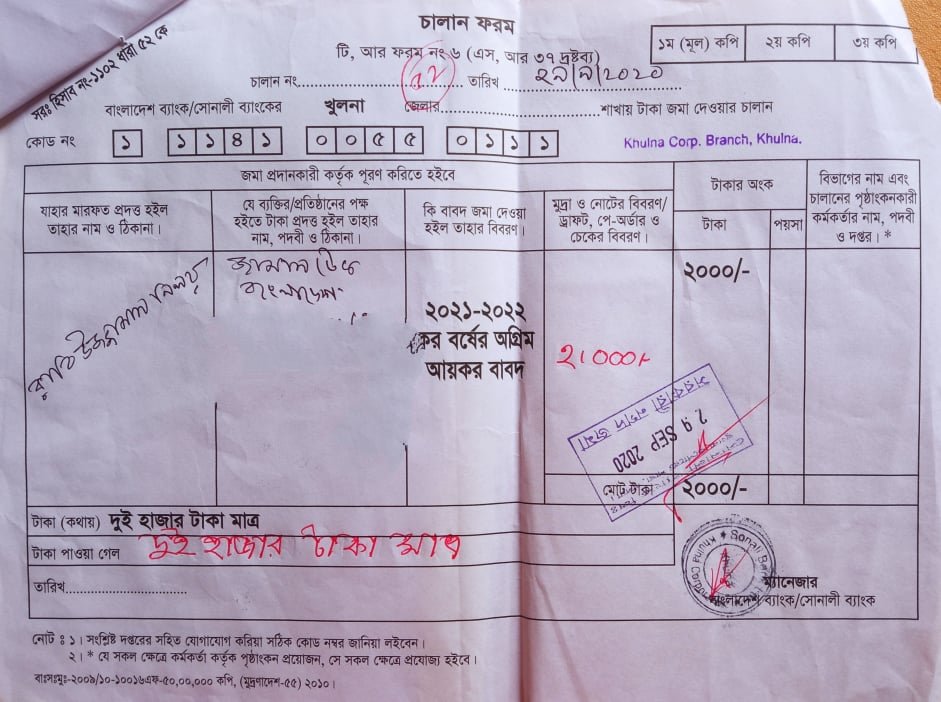 চালান ফরম
টি, আর ফরম নং ৬ (এস, আর ৩৭ দ্রষ্টব্য)
১ম (মূল) কপি ২য় কপি ৩য় কপি
সরঃ হিসাব নং-১১০২ ধারা ৫২ কে
চালান নং.......... তারিখ ২৯/৯/2020
বাংলাদেশ ব্যাংক/সোনালী ব্যাংকের খুলনা জেলার..........শাখায় টাকা জমা দেওয়ার চালান
কোড নং ১ ১১৪১ ০০৫৫ ০১১১
Khulna Corp. Branch, Khulna.
জমা প্রদানকারী কর্তৃক পূরণ করিতে হইবে
টাকার অংক
বিভাগের নাম এবং চালানের পৃষ্ঠাংকনকারী কর্মকর্তার নাম, পদবী ও দপ্তর। *
যাহার মারফত প্রদত্ত হইল তাহার নাম ও ঠিকানা।
যে ব্যক্তির/প্রতিষ্ঠানের পক্ষ হইতে টাকা প্রদত্ত হইল তাহার নাম, পদবী ও ঠিকানা।
কি বাবদ জমা দেওয়া হইল তাহার বিবরণ।
মুদ্রা ও নোটের বিবরণ/ড্রাফট, পে-অর্ডার ও চেকের বিবরণ।
টাকা
পয়সা
জামাল টেক
বাংলাদেশ
২০২১-২০২২
কর বর্ষের অগ্রিম
আয়কর বাবদ
২০০০/-
২1000/-
সরকারী নগদ জমা
29 SEP 2020
মোট টাকা ২০০০/-
টাকা (কথায়) দুই হাজার টাকা মাত্র
টাকা পাওয়া গেল দুই হাজার টাকা মাত্র
তারিখ..........
ম্যানেজার
বাংলাদেশ ব্যাংক/সোনালী ব্যাংক
নোট ঃ ১। সংশ্লিষ্ট দপ্তরের সহিত যোগাযোগ করিয়া সঠিক কোড নম্বর জানিয়া লইবেন।
২। * যে সকল ক্ষেত্রে কর্মকর্তা কর্তৃক পৃষ্ঠাংকন প্রয়োজন, সে সকল ক্ষেত্রে প্রযোজ্য হইবে।
বাঃসঃমুঃ-২০০৯/১০-১০০১৬এফ-৫০,০০,০০০ কপি, (মুদ্রণাদেশ-৫৫) ২০১০।